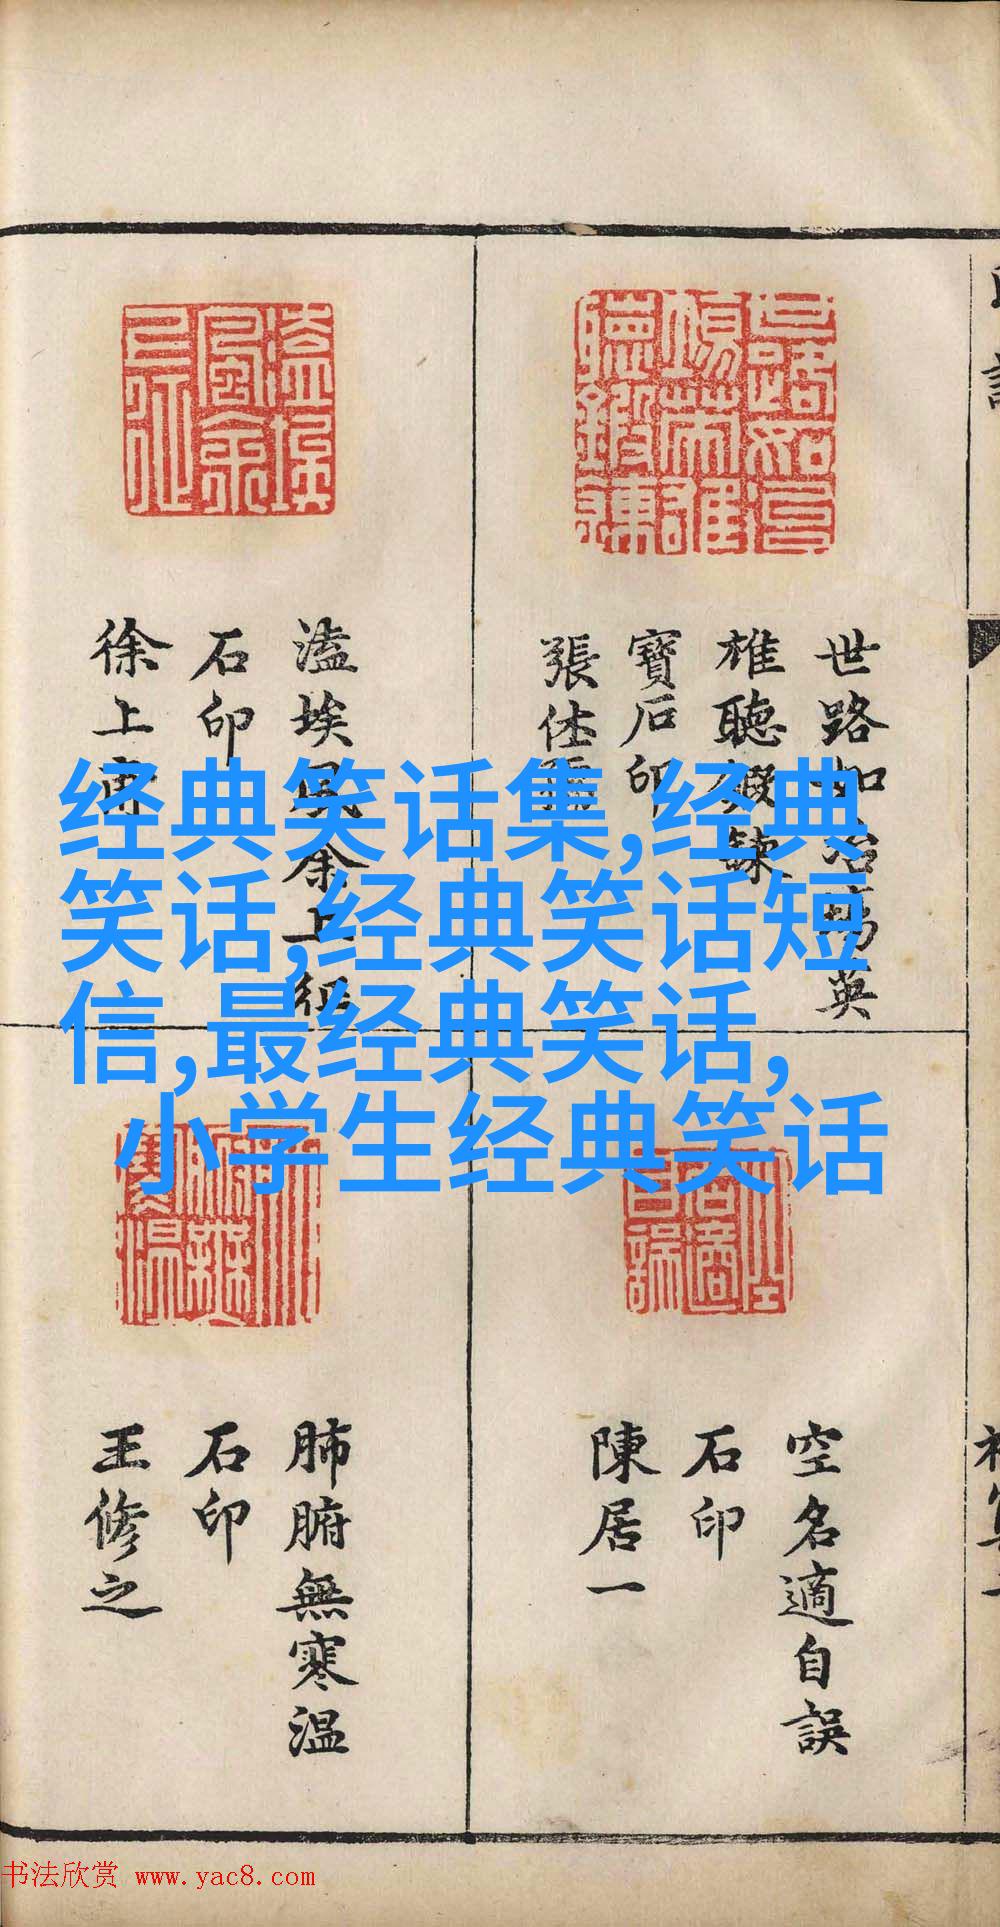 世路如冶鍚英
雄聽鍛鍊
寶石印
張仕
溘埃風余上征
石印
徐上甫
经典笑话集,经典
笑话,经典笑话短
信,最经典笑话,
小学生经典笑话
空名適自誤
石印
陳居一
肺腑無寒温
石印
王修之
书法欣赏 www.yac8.com